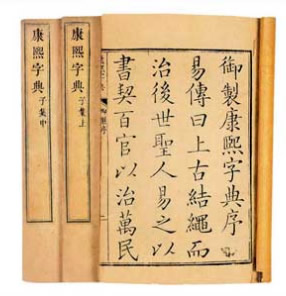 御製康熙字典序
易傳曰上古結繩而
治後世聖人易之以
書契百官以治萬民
康熙字典
子集上
康熙字典
子集中